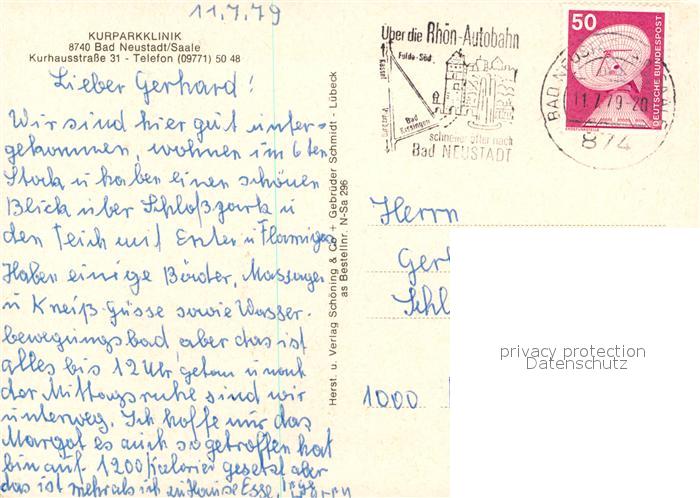 11.7.79
KURPARKKLINIK
8740 Bad Neustadt/Saale
Kurhausstraße 31 - Telefon (09771) 50 48
Lieber Gerhard!
Wir sind hier gut unter-
gekommen, wohnen im 6ten
Stock u haben einen schönen
Blick über Schloßpark u
den Teich mit Enten u Flamingos
Haben einige Bäder, Massagen
u Kneiß-Güsse sowie Wasser-
bewegungsbad, aber das ist
alles bis 12 Uhr getan u nach
der Mittagsruhe sind wir
unterweg. Ich hoffe nur das
Margot es auch so getroffen hat
bin auf 1200 Kalorien gesetzt aber
das ist mehr als ich zuhause Esse.
Herst. u. Verlag Schöning & Co + Gebrüder Schmidt - Lübeck
as Bestellnr. N-Sa 296
Über die Rhön-Autobahn
Fulda-Süd
Bad
Kissingen
schneller öfter nach
Bad NEUSTADT
50
DEUTSCHE BUNDESPOST
BAD NEUSTADT
11.7.79-20
874
Herrn
Ger
Schl
1000
privacy protection
Datenschutz